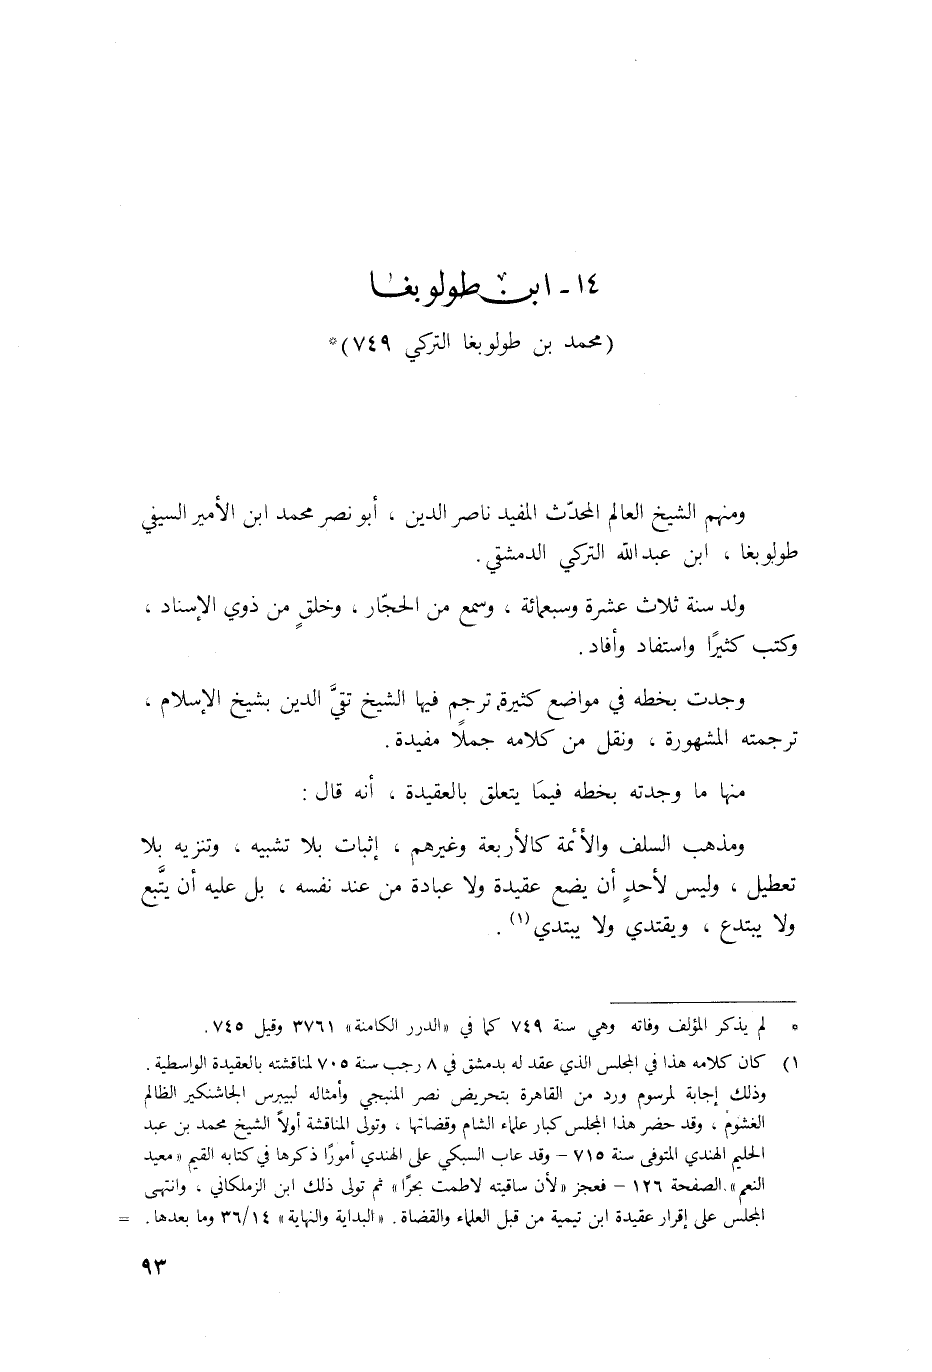 ١٤ - ابن طولوبغا
(محمد بن طولوبغا التركي ٧٤٩)*
ومنهم الشيخ العالم المحدّث المفيد ناصر الدين ، أبو نصر محمد ابن الأمير السيفي
طولوبغا ، ابن عبد الله التركي الدمشقي .
ولد سنة ثلاث عشرة وسبعمائة ، وسمع من الحجّار ، وخلقٍ من ذوي الإسناد ،
وكتب كثيرًا واستفاد وأفاد .
وجدت بخطه في مواضع كثيرة, ترجم فيها الشيخ تقيَّ الدين بشيخ الإسلام ،
ترجمته المشهورة ، ونقل من كلامه جملًا مفيدة .
منها ما وجدته بخطه فيمَا يتعلق بالعقيدة ، أنه قال :
ومذهب السلف والأئمة كالأربعة وغيرهم ، إثبات بلا تشبيه ، وتنزيه بلا
تعطيل ، وليس لأحدٍ أن يضع عقيدة ولا عبادة من عند نفسه ، بل عليه أن يتَّبع
ولا يبتدع ، ويقتدي ولا يبتدي(١) .
* لم يذكر المؤلف وفاته وهي سنة ٧٤٩ كما في «الدرر الكامنة» ٣٧٦١ وقيل ٧٤٥ .
١) كان كلامه هذا في المجلس الذي عقد له بدمشق في ٨ رجب سنة ٧٠٥ لمناقشته بالعقيدة الواسطية .
وذلك إجابة لمرسوم ورد من القاهرة بتحريض نصر المنبجي وأمثاله لبيبرس الجاشنكير الظالم
الغشوم ، وقد حضر هذا المجلس كبار علماء الشام وقضاتها ، وتولى المناقشة أولاً الشيخ محمد بن عبد
الحليم الهندي المتوفى سنة ٧١٥ - وقد عاب السبكي على الهندي أمورًا ذكرها في كتابه القيم «معيد
النعم». الصفحة ١٢٦ - فعجز «لأن ساقيته لاطمت بحرًا» ثم تولى ذلك ابن الزملكاني ، وانتهى
المجلس على إقرار عقيدة ابن تيمية من قبل العلماء والقضاة . «البداية والنهاية» ٣٦/١٤ وما بعدها . =
٩٣